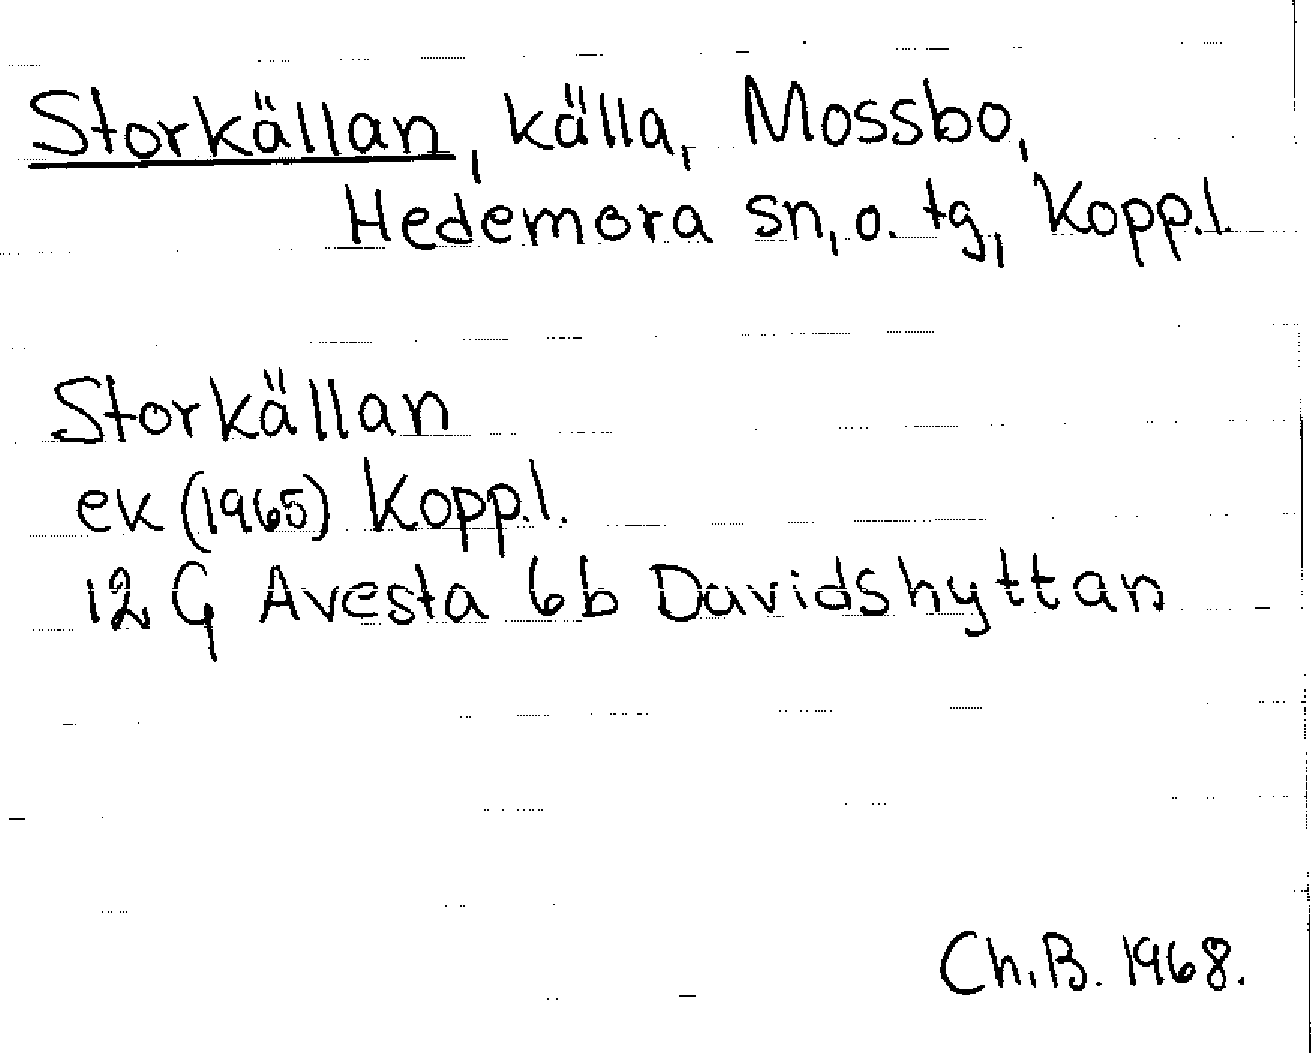 Storkällan, källa, Mossbo,
Hedemora sn, o. tg, Kopp.l.
Storkällan
ek (1965) Kopp.l.
12 G Avesta 6b Davidshyttan
Ch.B. 1968.